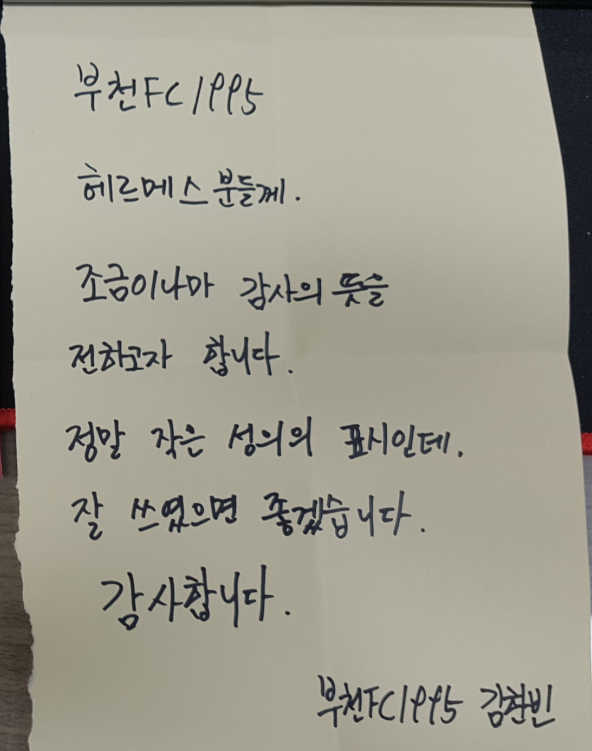 부천FC1995
헤르메스 분들께.
조금이나마 감사의 뜻을
전하고자 합니다.
정말 작은 성의의 표시인데.
잘 쓰였으면 좋겠습니다.
감사합니다.
부천FC1995 김현빈